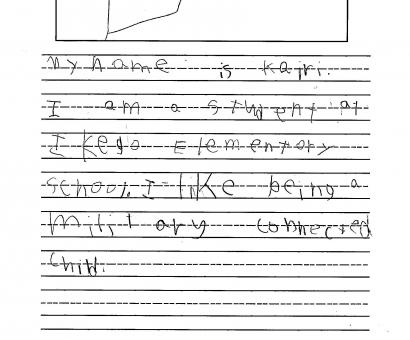 My name is Kairi.
I am a student at
Ikego Elementary
School. I like being a
military connected
child.